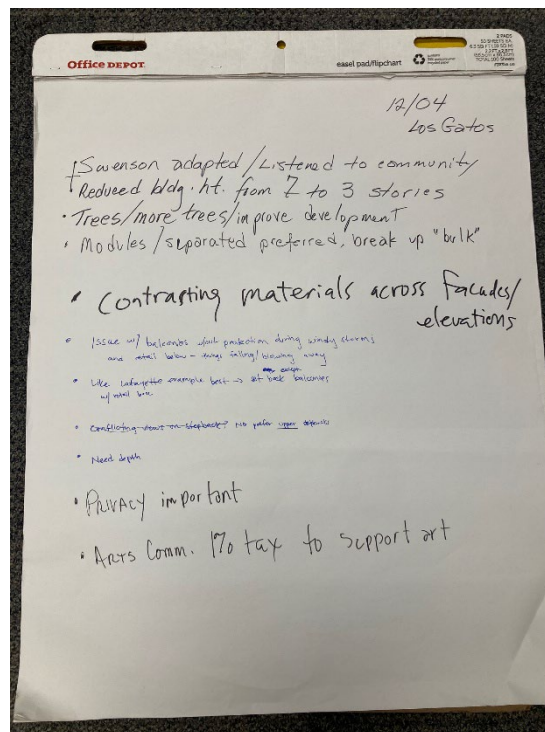 Office DEPOT
easel pad/flipchart
2 PADS
12/04
Los Gatos
Swenson adapted/Listened to community
Reduced bldg. ht. from 7 to 3 stories
• Trees/more trees/improve development
• Modules/separated preferred, break up "bulk"
• Contrasting materials across facades/
elevations
• Issue w/ balconies w/out protection during windy storms
and retail below - things falling/blowing away
• Like Lafayette example best → set back balconies
except
w/ retail base
• Conflicting views on stepback? No prefer upper
• Need depth
• Privacy important
• Arts Comm. 1% tax to support art